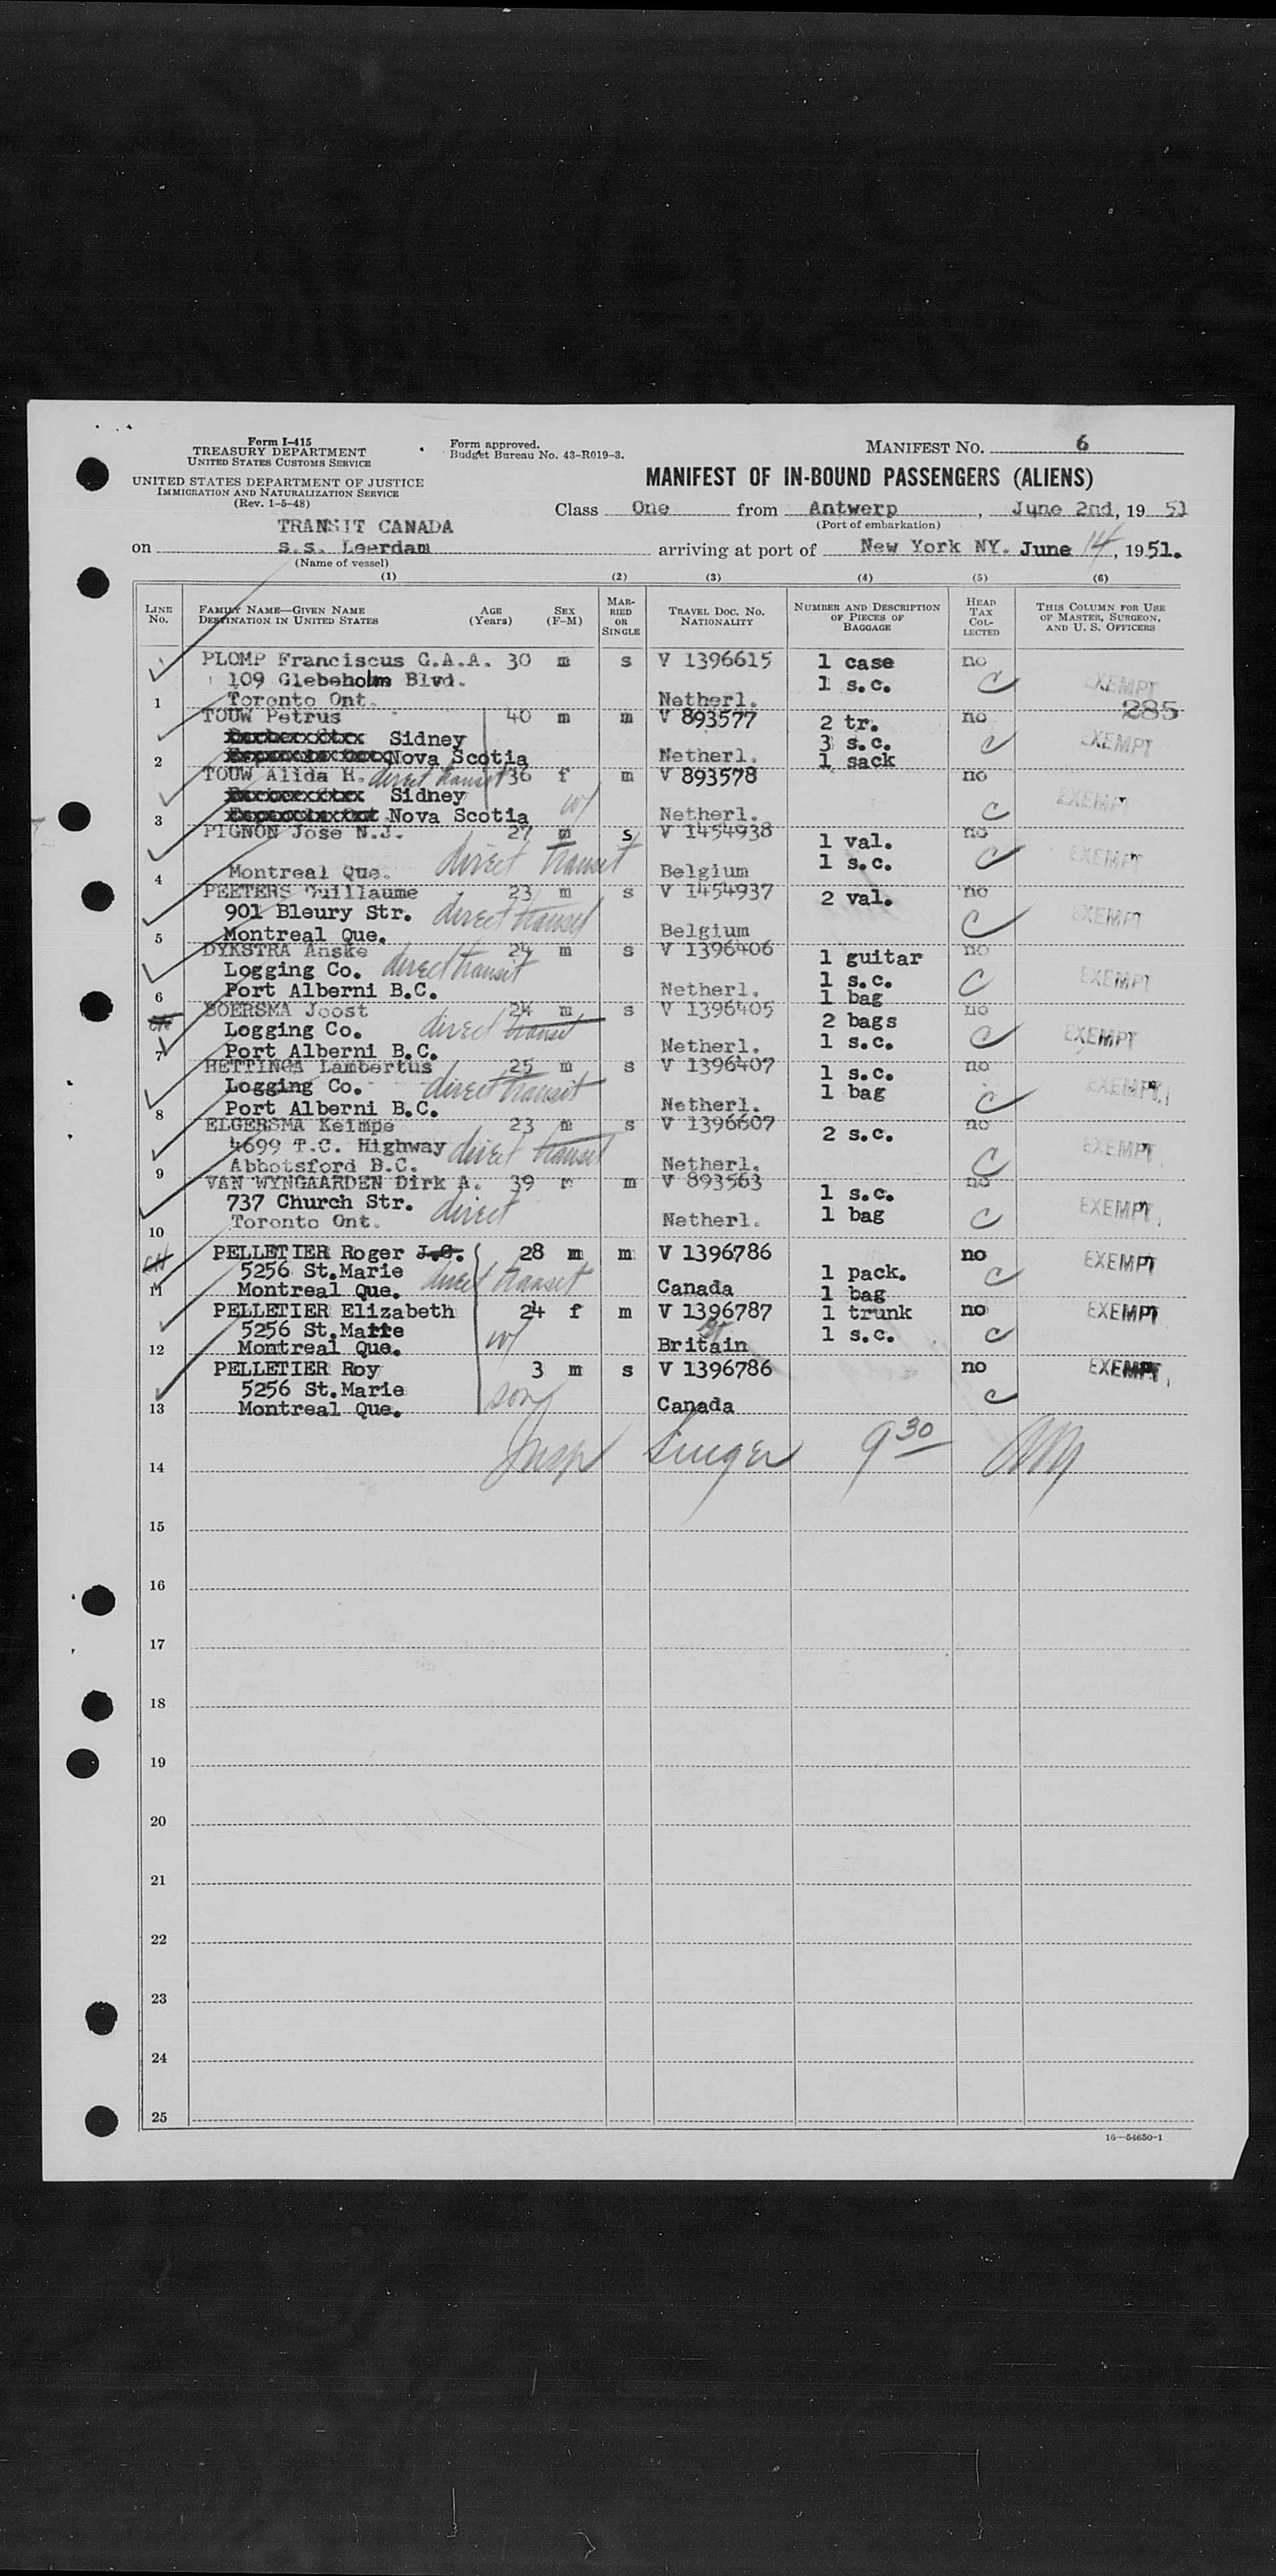 Form I-415
TREASURY DEPARTMENT
UNITED STATES CUSTOMS SERVICE
UNITED STATES DEPARTMENT OF JUSTICE
IMMIGRATION AND NATURALIZATION SERVICE
(Rev. 1-5-48)
Form approved.
Budget Bureau No. 43-R019-3.
MANIFEST NO. 6
MANIFEST OF IN-BOUND PASSENGERS (ALIENS)
Class One from Antwerp, June 2nd, 1951
(Port of embarkation)
TRANSIT CANADA
on s.s. Leerdam arriving at port of New York NY. June 14, 1951.
(Name of vessel)
(1) (2) (3) (4) (5) (6)
LINE NO. FAMILY NAME—GIVEN NAME DESTINATION IN UNITED STATES AGE (Years) SEX (F-M) MARRIED OR SINGLE TRAVEL DOC. NO. NATIONALITY NUMBER AND DESCRIPTION OF PIECES OF BAGGAGE HEAD TAX COLLECTED THIS COLUMN FOR USE OF MASTER, SURGEON, AND U. S. OFFICERS
PLOMP Franciscus C.A.A. 30 m s V 1396615 1 case no
109 Glebeholm Blvd. 1 s.c. C EXEMPT
1 Toronto Ont. Netherl. 285
TOUW Petrus 40 m m V 893577 2 tr. no
Sidney 3 s.c. C EXEMPT
2 Nova Scotia Netherl. 1 sack
TOUW Alida H. direct transit 36 f m V 893578 no
Sidney w/ EXEMPT
3 Nova Scotia Netherl. C
PIGNON Jose N.J. 27 m s V 1454938 1 val. no
direct transit 1 s.c. C EXEMPT
4 Montreal Que. Belgium
PEETERS Guillaume 23 m s V 1454937 2 val. no
901 Bleury Str. direct transit C EXEMPT
5 Montreal Que. Belgium
DYKSTRA Anske 24 m s V 1396406 1 guitar no
Logging Co. direct transit 1 s.c. C EXEMPT
6 Port Alberni B.C. Netherl. 1 bag
BOERSMA Joost 24 m s V 1396405 2 bags no
Logging Co. direct transit 1 s.c. C EXEMPT
7 Port Alberni B.C. Netherl.
HETTINGA Lambertus 25 m s V 1396407 1 s.c. no
Logging Co. direct transit 1 bag C EXEMPT
8 Port Alberni B.C. Netherl.
ELGERSMA Keimpe 23 m s V 1396607 2 s.c. no
4699 T.C. Highway direct transit C EXEMPT
9 Abbotsford B.C. Netherl.
VAN WYNGAARDEN Dirk A. 39 m m V 893563 1 s.c. no
737 Church Str. direct 1 bag C EXEMPT
10 Toronto Ont. Netherl.
PELLETIER Roger J.O. 28 m m V 1396786 no EXEMPT
5256 St.Marie direct transit 1 pack. C
11 Montreal Que. Canada 1 bag
PELLETIER Elizabeth 24 f m V 1396787 1 trunk no EXEMPT
5256 St.Marie w/ 1 s.c. C
12 Montreal Que. Britain
PELLETIER Roy 3 m s V 1396786 no EXEMPT
5256 St.Marie son C
13 Montreal Que. Canada
Insp Singer 9 30 AM
14
15
16
17
18
19
20
21
22
23
24
25
16—54650-1